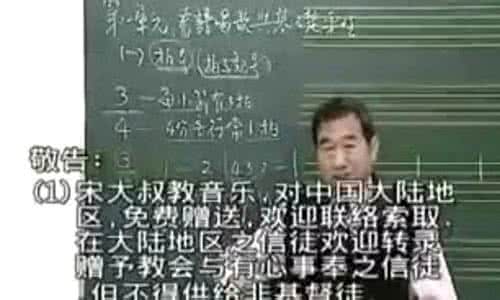 第一单元,看譜唱歌與基礎樂理
(一)拍号(拍子記号)
3 — 每小節有3拍
4 — 4分音符當1拍
3
敬告:
(1)宋大叔教音乐,对中国大陆地
区,免费赠送,欢迎联络索取.
在大陆地区之信徒欢迎转录
赠予教会与有心事奉之信徒
,但不得供给非基督徒